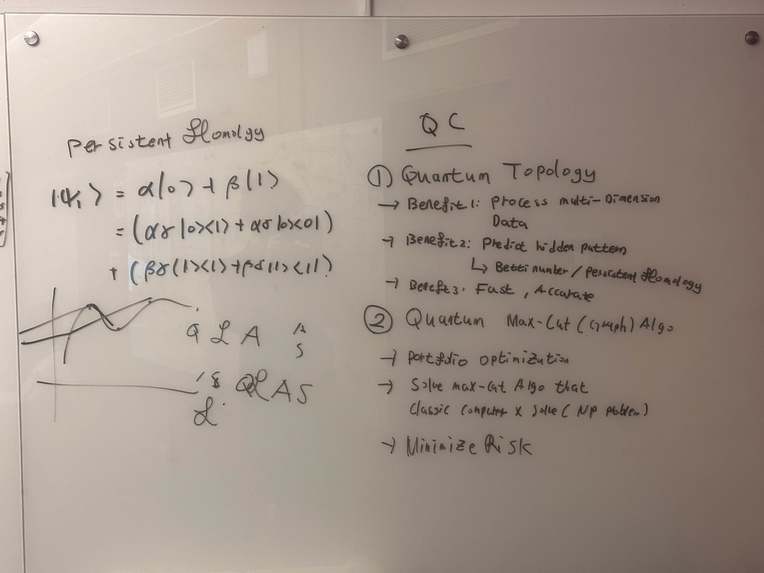 Persistent Homolgy
|Ψ₁⟩ = α|0⟩ + β|1⟩
= (αγ|0><1) + αδ|0><01)
+ (βγ(1><1) + βδ|1><1)?
Q L A A
S
QLAS
QC
① Quantum Topology
→ Benefit1: Process multi-Dimension
Data
→ Benefit2: Predict hidden pattern
↳ Betti number/persistent Homology
→ Benefit3: Fast, Accurate
② Quantum Max-Cut (Graph) Algo
→ Portfolio optimization
→ Solve max-cut Algo that
Classic Computer x solve (NP Problem)
→ Minimize Risk